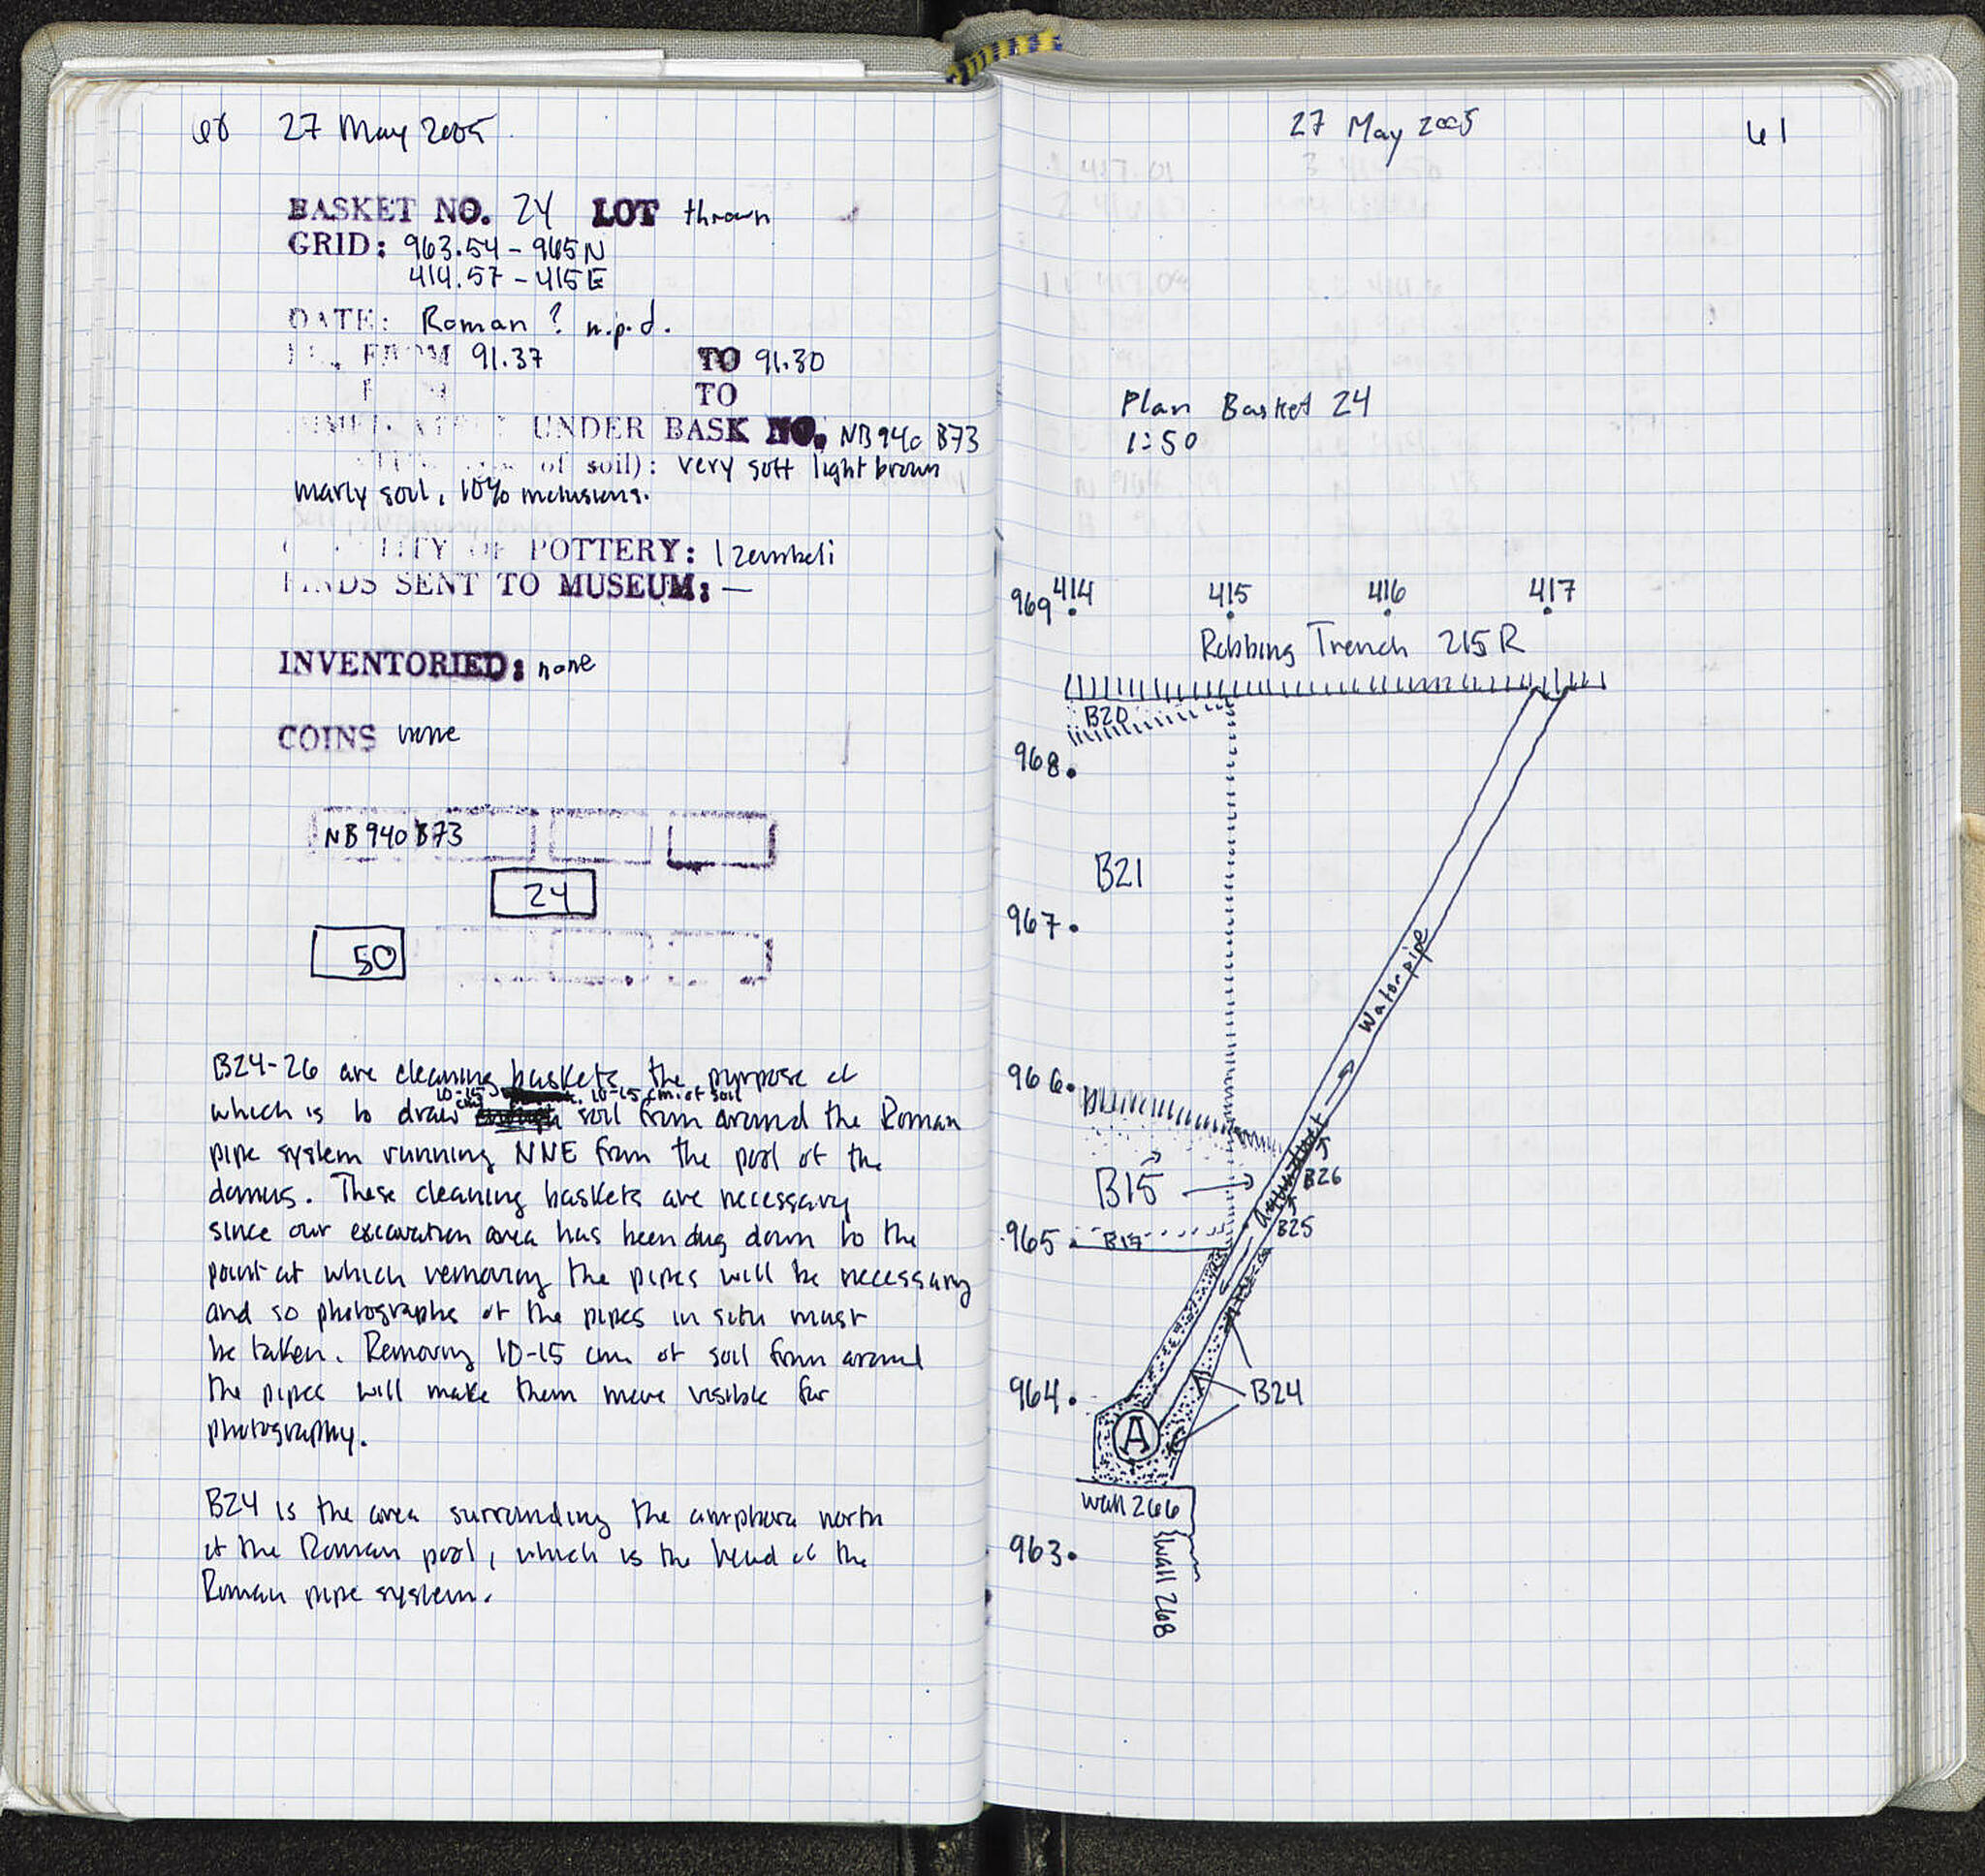 60 27 May 2005
BASKET NO. 24 LOT thrown
GRID: 963.54 - 965 N
414.57 - 415 E
DATE: Roman ? n.p.d.
FROM 91.37 TO 91.30
TO
UNDER BASK NO. NB940 B73
of soil): very soft light brown
marly soil, 10% inclusions.
POTTERY: 1 zembeli
FINDS SENT TO MUSEUM: —
INVENTORIED: none
COINS none
NB940 B73
24
50
B24-26 are cleaning baskets the purpose of
10-15 cm 10-15 cm. of soil
which is to draw soil from around the Roman
pipe system running NNE from the pool of the
domus. These cleaning baskets are necessary
since our excavation area has been dug down to the
point at which removing the pipes will be necessary
and so photographs of the pipes in situ must
be taken. Removing 10-15 cm of soil from around
the pipes will make them more visible for
photography.
B24 is the area surrounding the amphora north
of the Roman pool, which is the head of the
Roman pipe system.
27 May 2005 61
Plan Basket 24
1:50
969 414 415 416 417
Robbing Trench 215R
B20
968
B21
967
Waterpipe
966
B15
B26
B25
965
964
B24
A
Wall 266
963
Wall 268